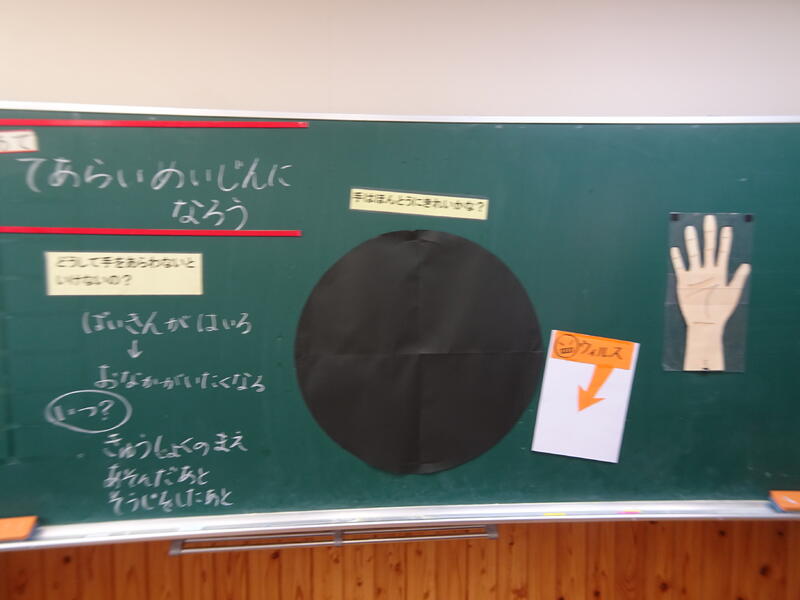 てあらいめいじんに
なろう
どうして手をあらわないと
いけないの？
ばいきんがはいる
↓
おなかがいたくなる
いつ？
きゅうしょくのまえ
あそんだあと
そうじをしたあと
手はほんとうにきれいかな？
ウィルス